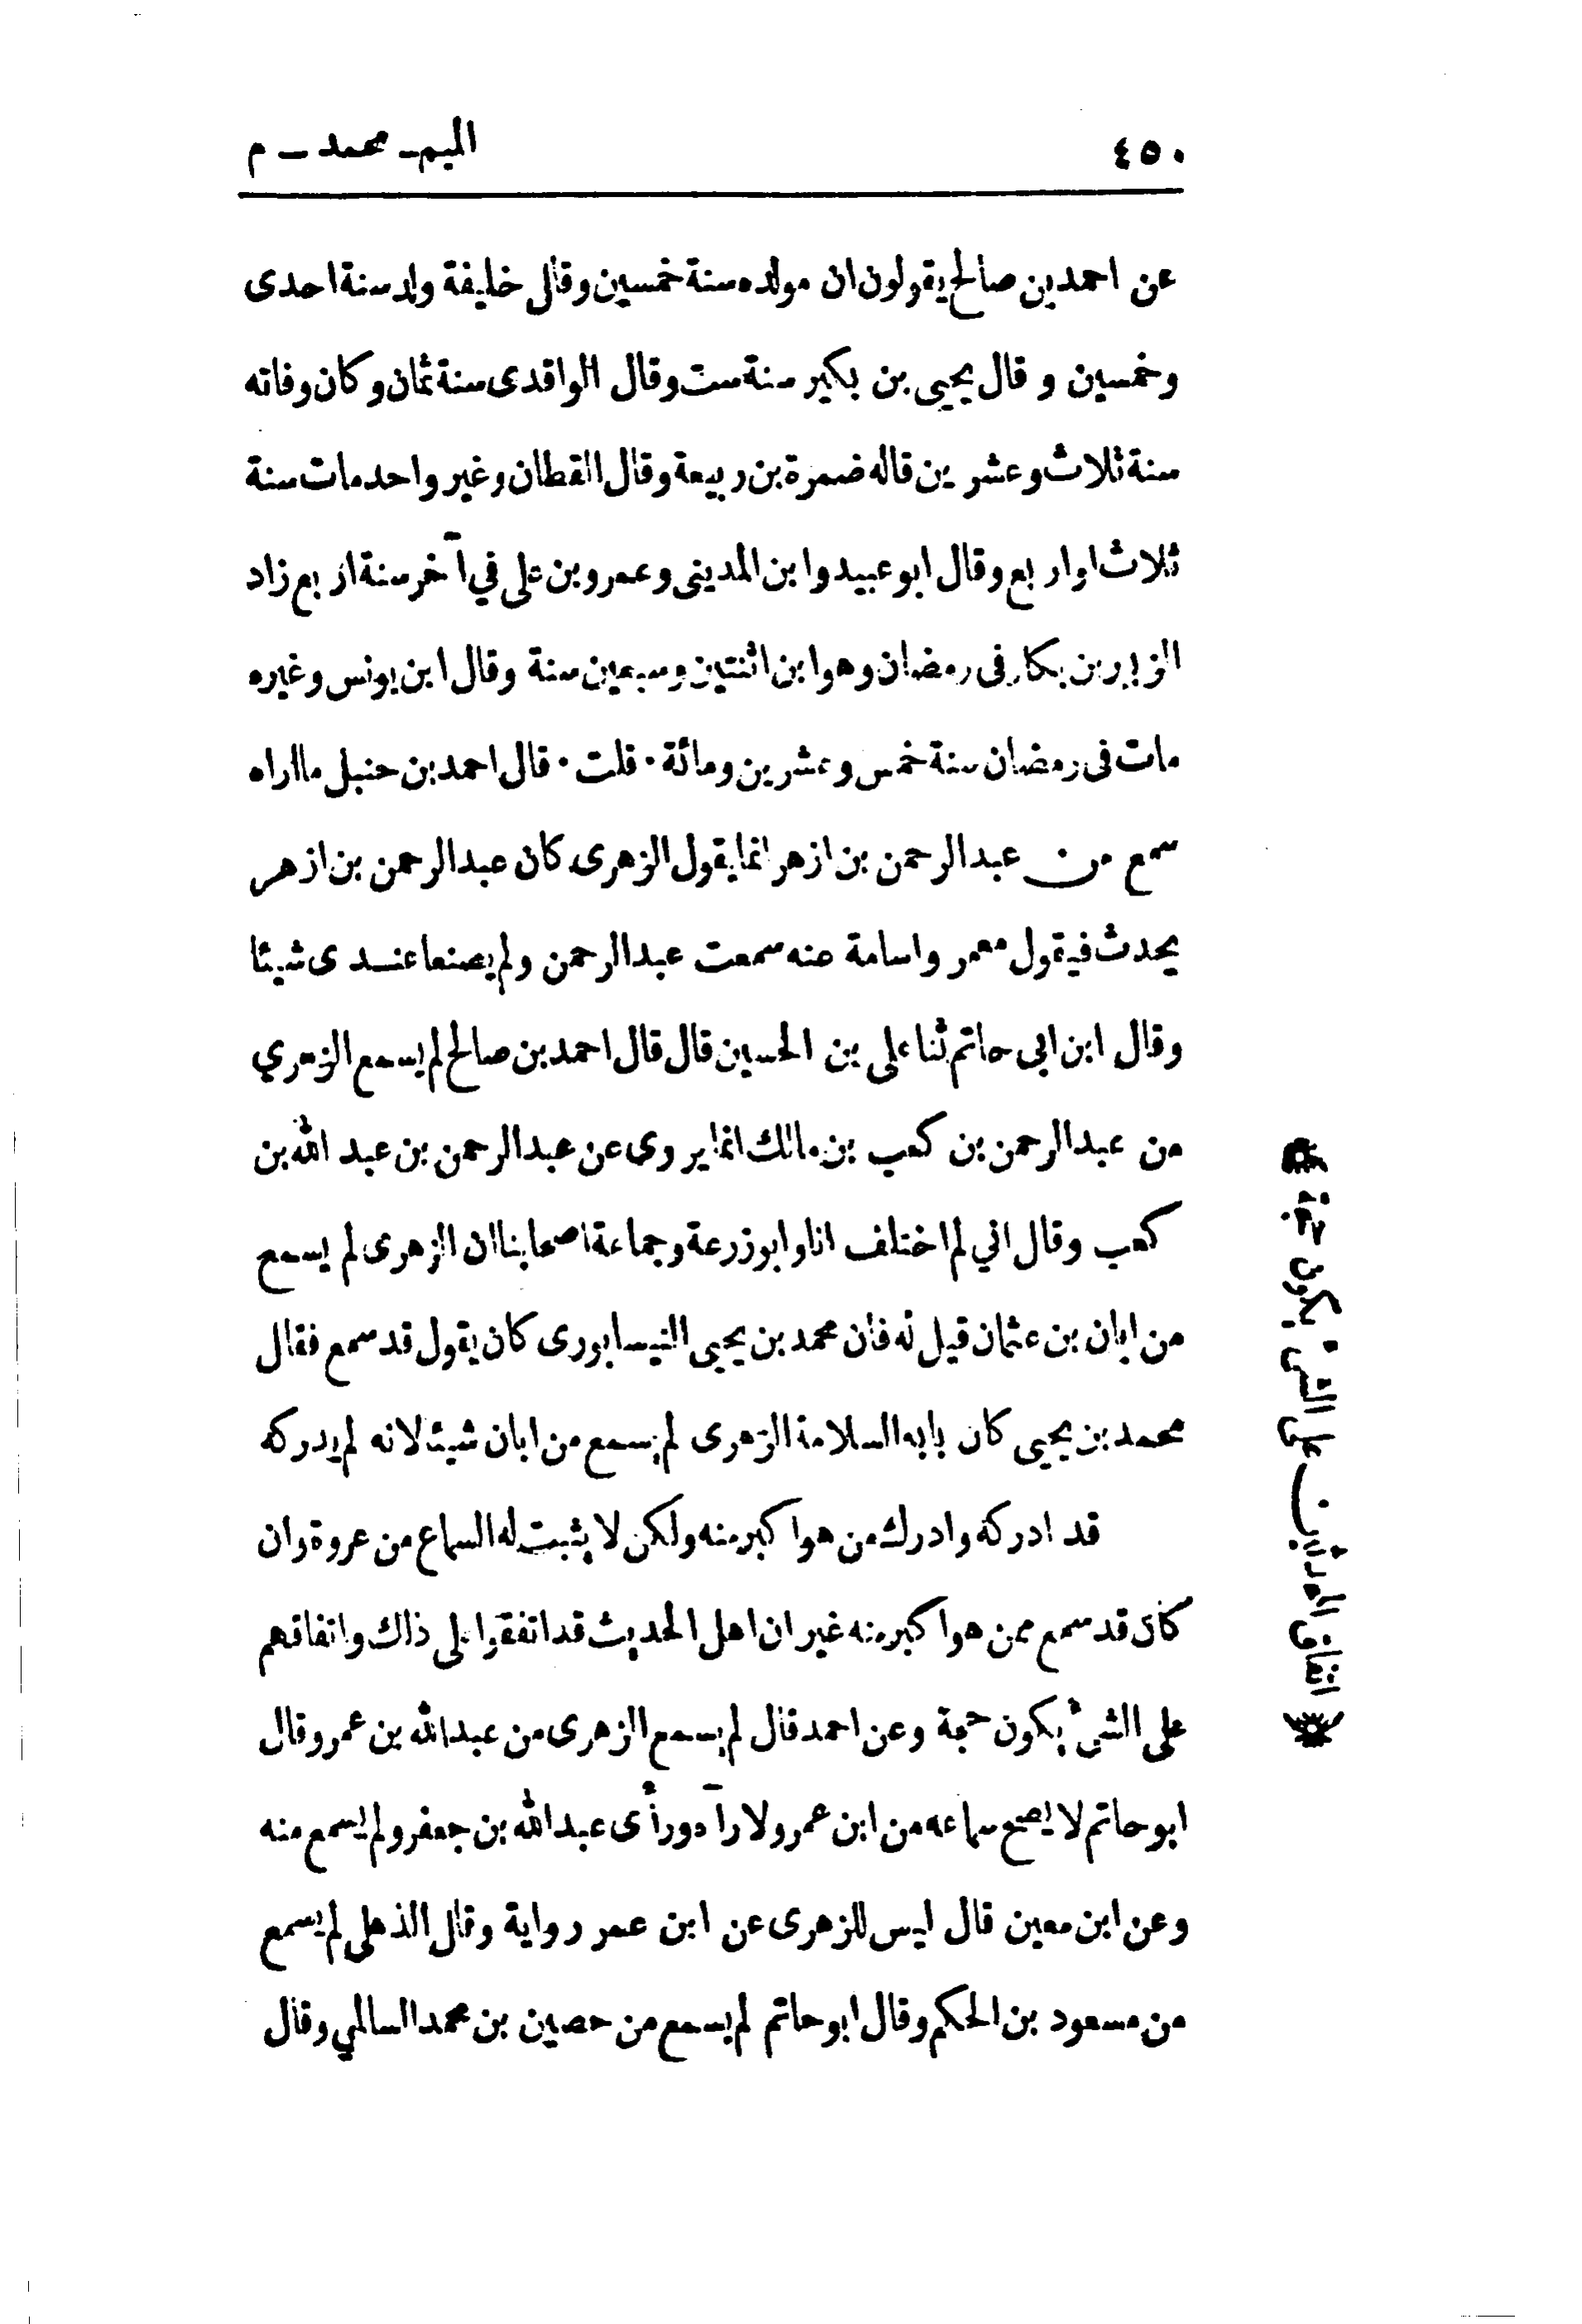 ٤٥٠
الميم - محمد - م
عن احمد بن صالح يقولون ان مولده سنة خمسين وقال خليفة ولد سنة احدى
وخمسين و قال يحيى بن بكير سنة ست وقال الواقدى سنة ثمان وكان وفاته
سنة ثلاث وعشرين قاله ضمرة بن ربيعة وقال القطان وغير واحد مات سنة
ثلاث اوار بع وقال ابو عبيد وابن المدينى وعمرو بن على في آخر سنة اربع زاد
الزبير بن بكار فى رمضان وهو ابن اثنتين وسبعين سنة وقال ابن يونس وغيره
مات فى رمضان سنة خمس وعشرين ومائة · قلت · قال احمد بن حنبل ما اراه
سمع من عبد الرحمن بن ازهر انما يقول الزهرى كان عبد الرحمن بن ازهر
يحدث فيقول معمر واسامة عنه سمعت عبد الرحمن ولم يصنعا عندى شيئا
وقال ابن ابى حاتم ثنا على بن الحسين قال قال احمد بن صالح لم يسمع الزهري
من عبد الرحمن بن كعب بن مالك انما يروى عن عبد الرحمن بن عبد الله بن
كعب وقال اني لم اختلف انا وابو زرعة وجماعة اصحابنا ان الزهرى لم يسمع
من ابان بن عثمان قيل له فان محمد بن يحيى النيسابورى كان يقول قد سمع فقال
محمد بن يحيى كان بابه السلامة الزهرى لم يسمع من ابان شيئا لانه لم يدركه
قد ادركه وادرك من هو اكبر منه ولكن لا يثبت له السماع من عروة وان
كان قد سمع ممن هو اكبر منه غير ان اهل الحديث قد اتفقوا على ذلك واتفاقهم
على الشئ يكون حجة وعن احمد قال لم يسمع الزهرى من عبد الله بن عمر وقال
ابو حاتم لا يصح سماعه من ابن عمر ولا رآه ورأى عبد الله بن جعفر ولم يسمع منه
وعن ابن معين قال ليس للزهرى عن ابن عمر رواية وقال الذهلى لم يسمع
من مسعود بن الحكم وقال ابو حاتم لم يسمع من حصين بن محمد السالمي وقال
اتفاق المحدثين على الشئ يكون حجة